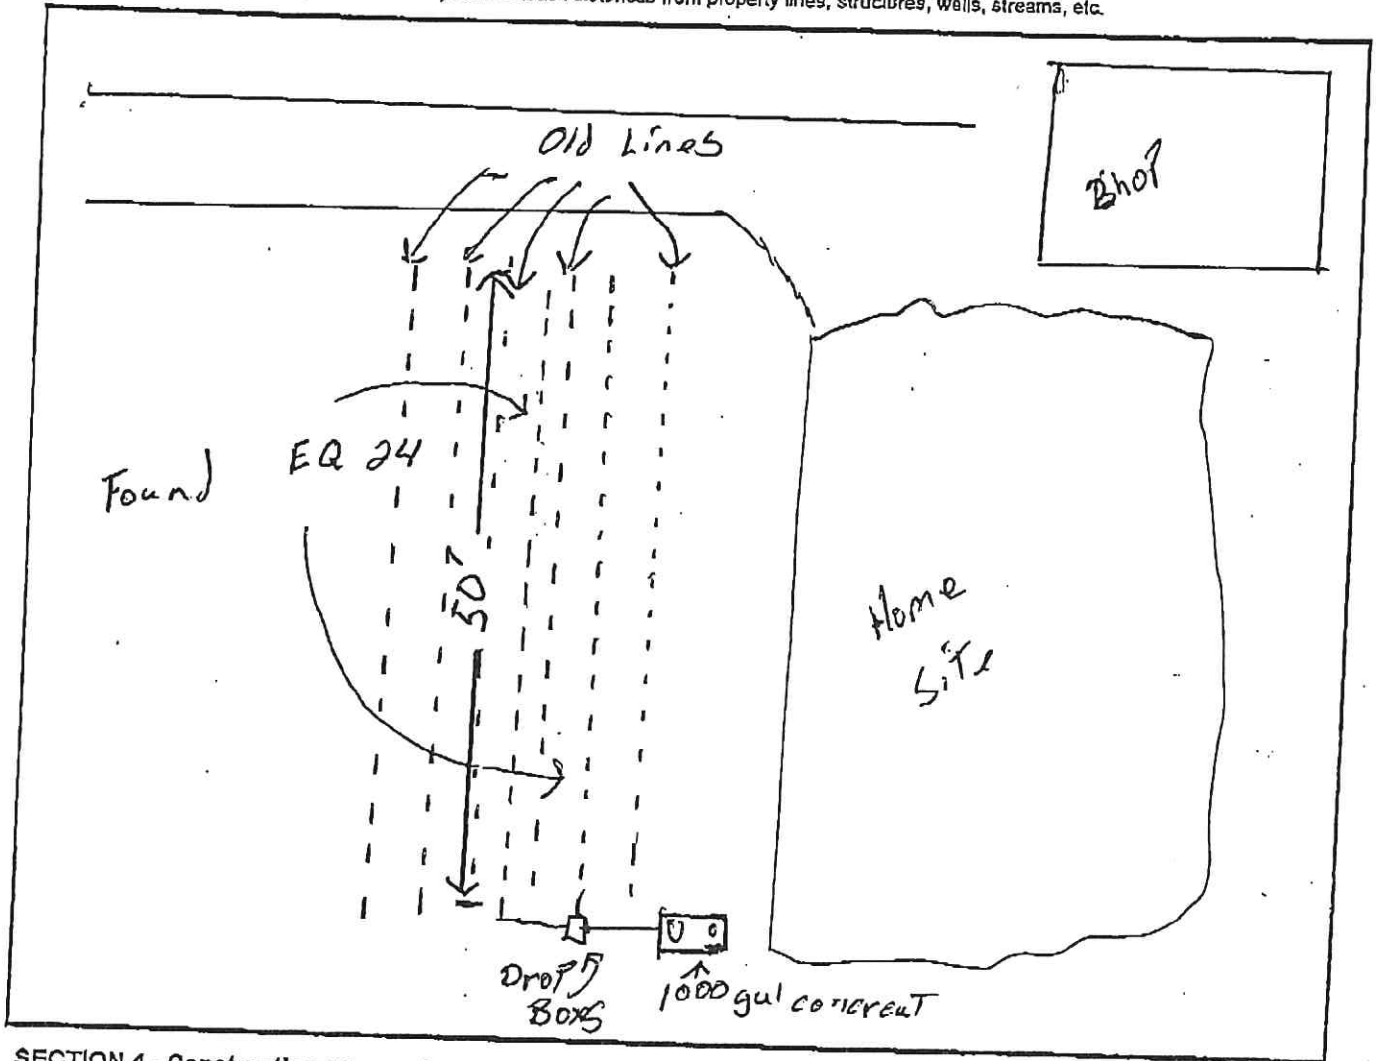 from property lines, structures, wells, streams, etc.
Old Lines
Shop
EQ 24
Found
50'
Home
Site
Drop
Boxs
1000 gal concreat
SECTION 4 -